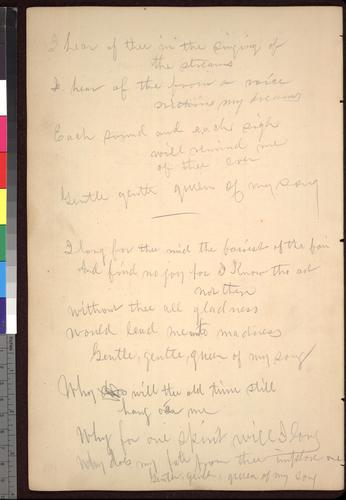 I hear of thee in the singing of
the streams
I hear of thee from a voice
my dreams
Each sound and each sigh
will remind me
of thee ever
Gentle gentle queen of my song
I long for thee mid the fairest of the fair
And find no joy for I know tho art
not there
Without thee all gladness
would lead me to madness
Gentle, gentle, queen of my song
Why will the old time still
hang oer me
Why for one spirit will I long
Why does my from thee one
Gentle, gentle, queen of my song